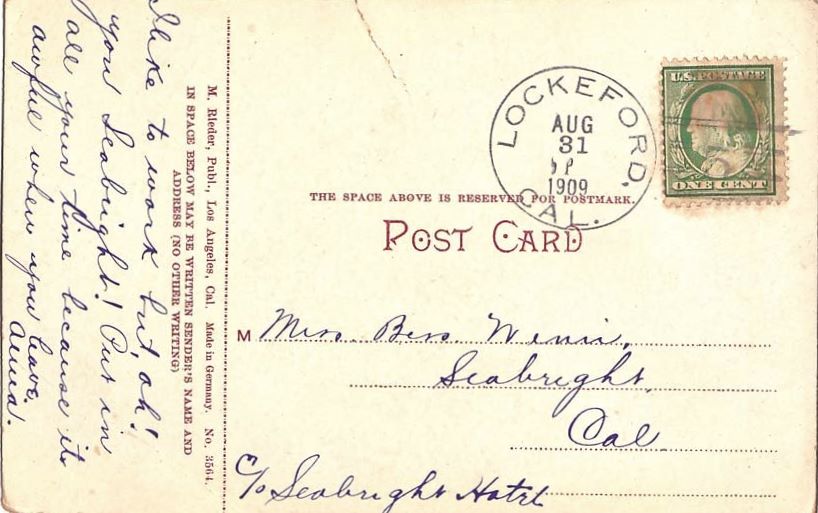 I like to work but, oh!
you Seabright! Put in
all your time because its
awful when you leave.
Anna.
M. Rieder, Publ., Los Angeles, Cal. Made in Germany. No. 3564.
IN SPACE BELOW MAY BE WRITTEN SENDER'S NAME AND
ADDRESS (NO OTHER WRITING)
LOCKEFORD,
AUG
31
P
1909
CAL.
U.S. POSTAGE
ONE CENT
THE SPACE ABOVE IS RESERVED FOR POSTMARK.
POST CARD
M Miss Bess
Seabright,
Cal
c/o Seabright Hotel